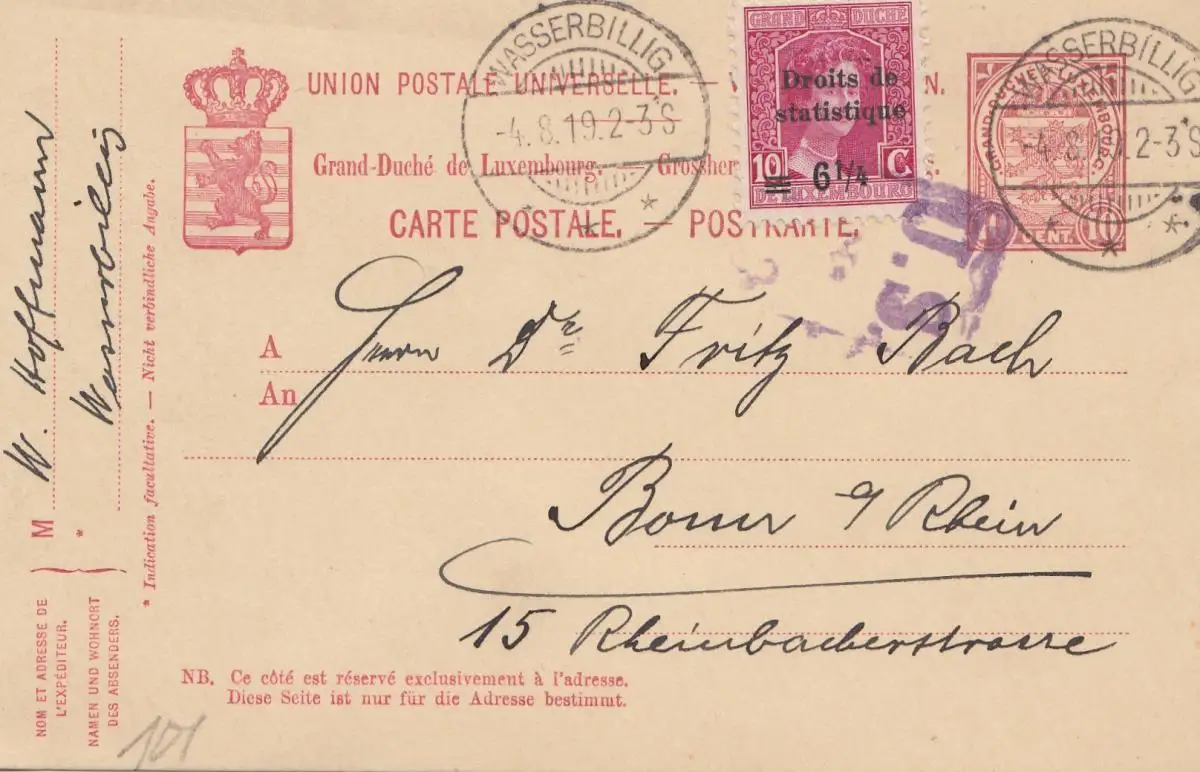 UNION POSTALE UNIVERSELLE. — N.
Grand-Duché de Luxembourg. Grossher
CARTE POSTALE. — POSTKARTE.
WASSERBILLIG
-4.8.19.2-3S
GRAND DUCHÉ
Droits de
statistique
10 C
6¼
DE LUXEMBOURG
WASSERBILLIG
-4.8.19.2-3S
GRAND-DUCHÉ DE LUXEMBOURG
CENT. 10
S.D
A Herrn Dr Fritz Bach
An
Bonn a/Rhein
15 Rheinbacherstrasse
NB. Ce côté est réservé exclusivement à l'adresse.
Diese Seite ist nur für die Adresse bestimmt.
M W. Hoffmann
* Wasserbillig
* Indication facultative. — Nicht verbindliche Angabe.
NOM ET ADRESSE DE
L'EXPÉDITEUR.
NAMEN UND WOHNORT
DES ABSENDERS.
101